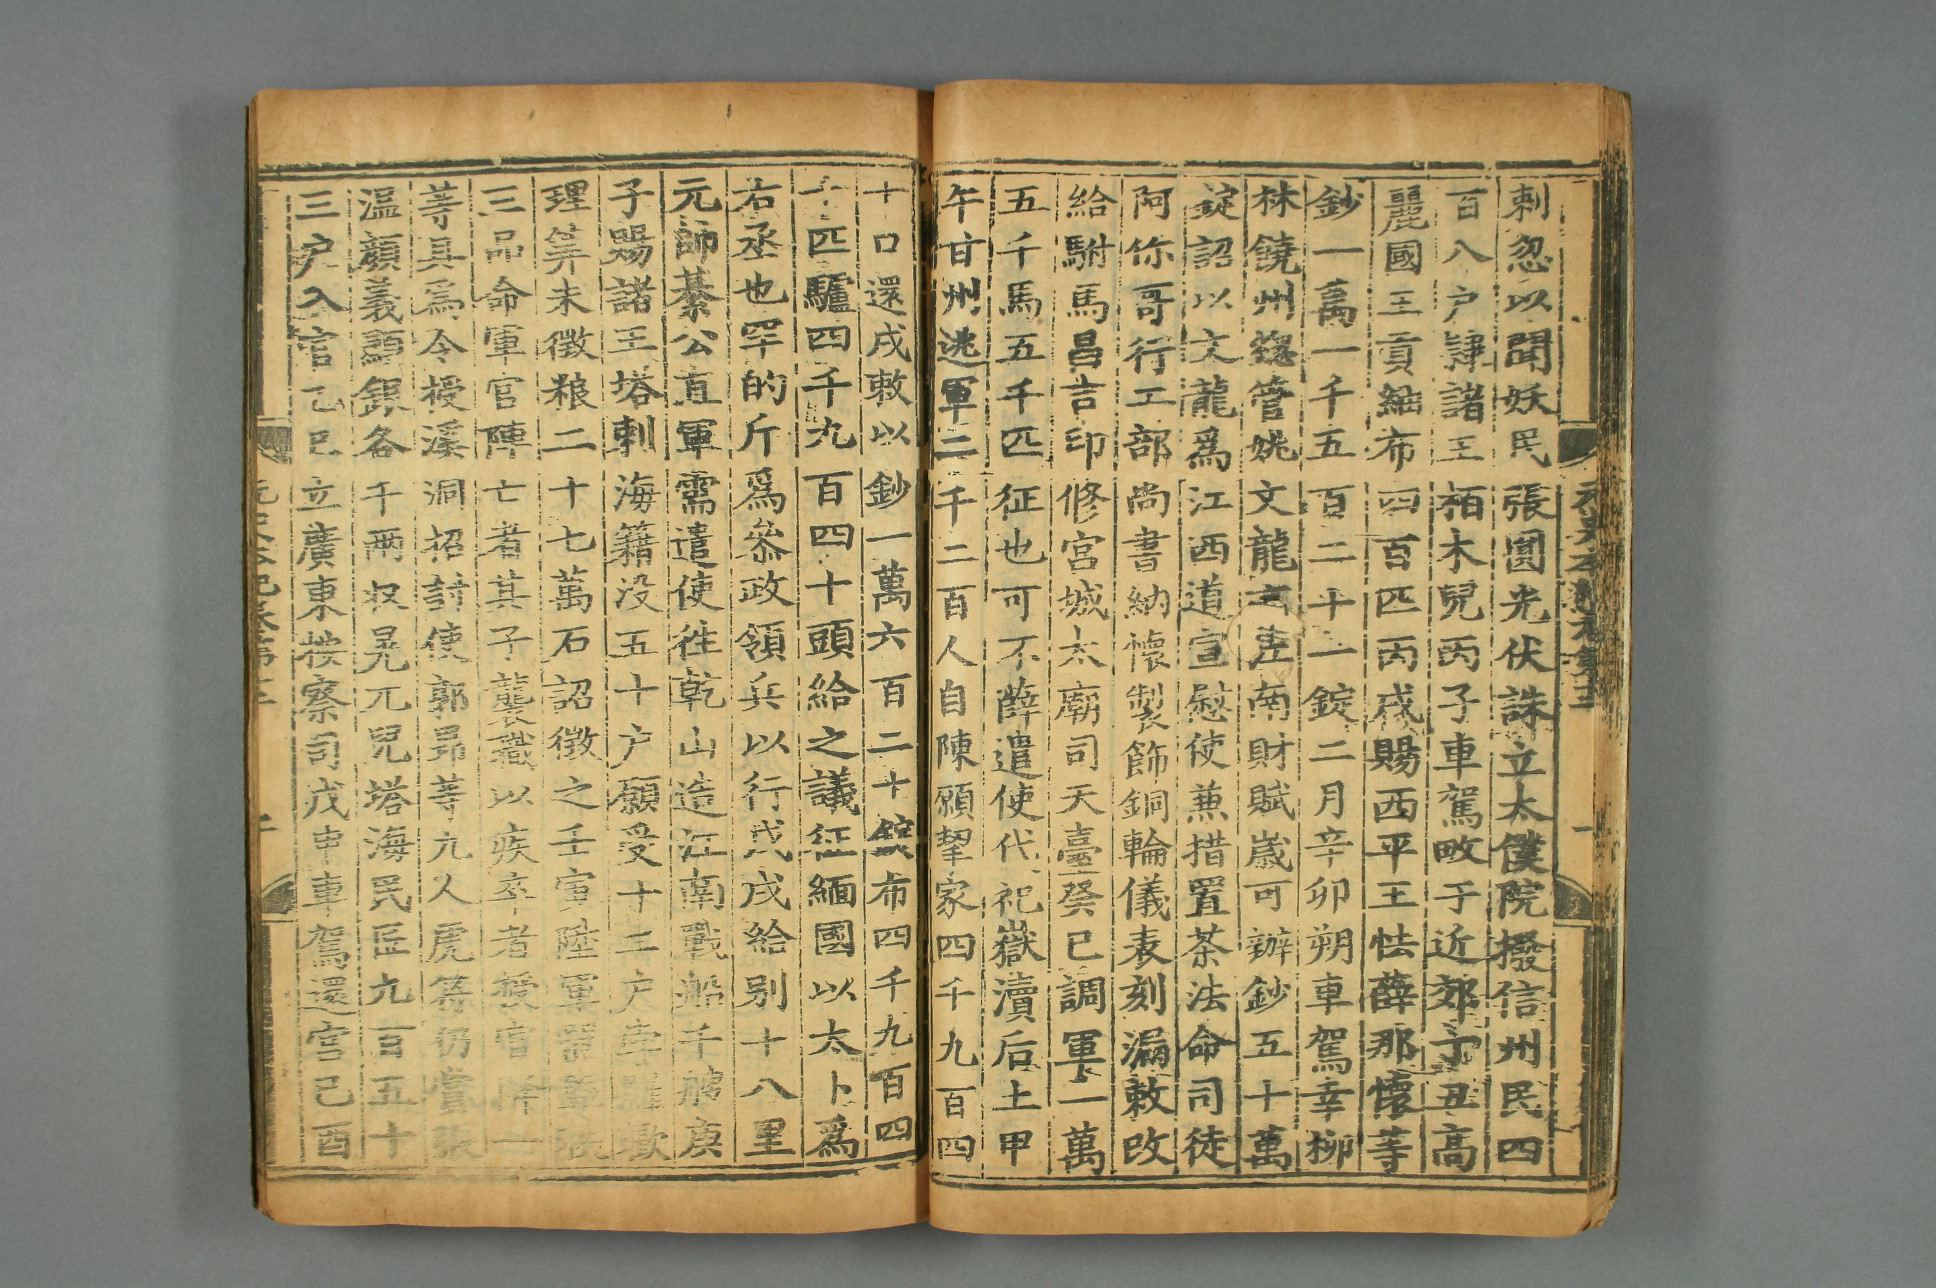 剌忽以聞妖民張圓光伏誅立太僕院撥信州民四
百八户隸諸王栢木兒丙子車駕畋于近郊丁丑高
麗國王貢紬布四百匹丙戌賜西平王怯薛那懷等
鈔一萬一千五百二十一錠二月辛卯朔車駕幸柳
林饒州緫管姚文龍言江南財賦歲可辦鈔五十萬
錠詔以文龍爲江西道宣慰使兼措置茶法命司徒
阿你哥行工部尚書納懷製飾銅輪儀表刻漏敕改
給駙馬昌吉印修宮城太廟司天臺癸巳調軍一萬
五千馬五千匹征也可不薛遣使代祀嶽瀆后土甲
午甘州逃軍二千二百人自陳願挈家四千九百四
十口還戍敕以鈔一萬六百二十錠布四千九百四
十匹驢四千九百四十頭給之議征緬國以太卜爲
右丞也罕的斤爲叅政領兵以行戊戌給别十八里
元帥綦公直軍需遣使徃乾山造江南戰船千艘庚
子賜諸王塔剌海籍没五十户願受十二户
理筭未徵粮二十七萬石詔徵之壬寅陞軍
三品命軍官陣亡者其子襲職以疾卒者授官降一
等具爲令授溪洞招討使郭昻等九人虎符仍賞張
溫顔義顯銀各千兩収晃兀兒塔海民匠九百五十
三户入官乙巳立廣東按察司戊申車駕還宮己酉